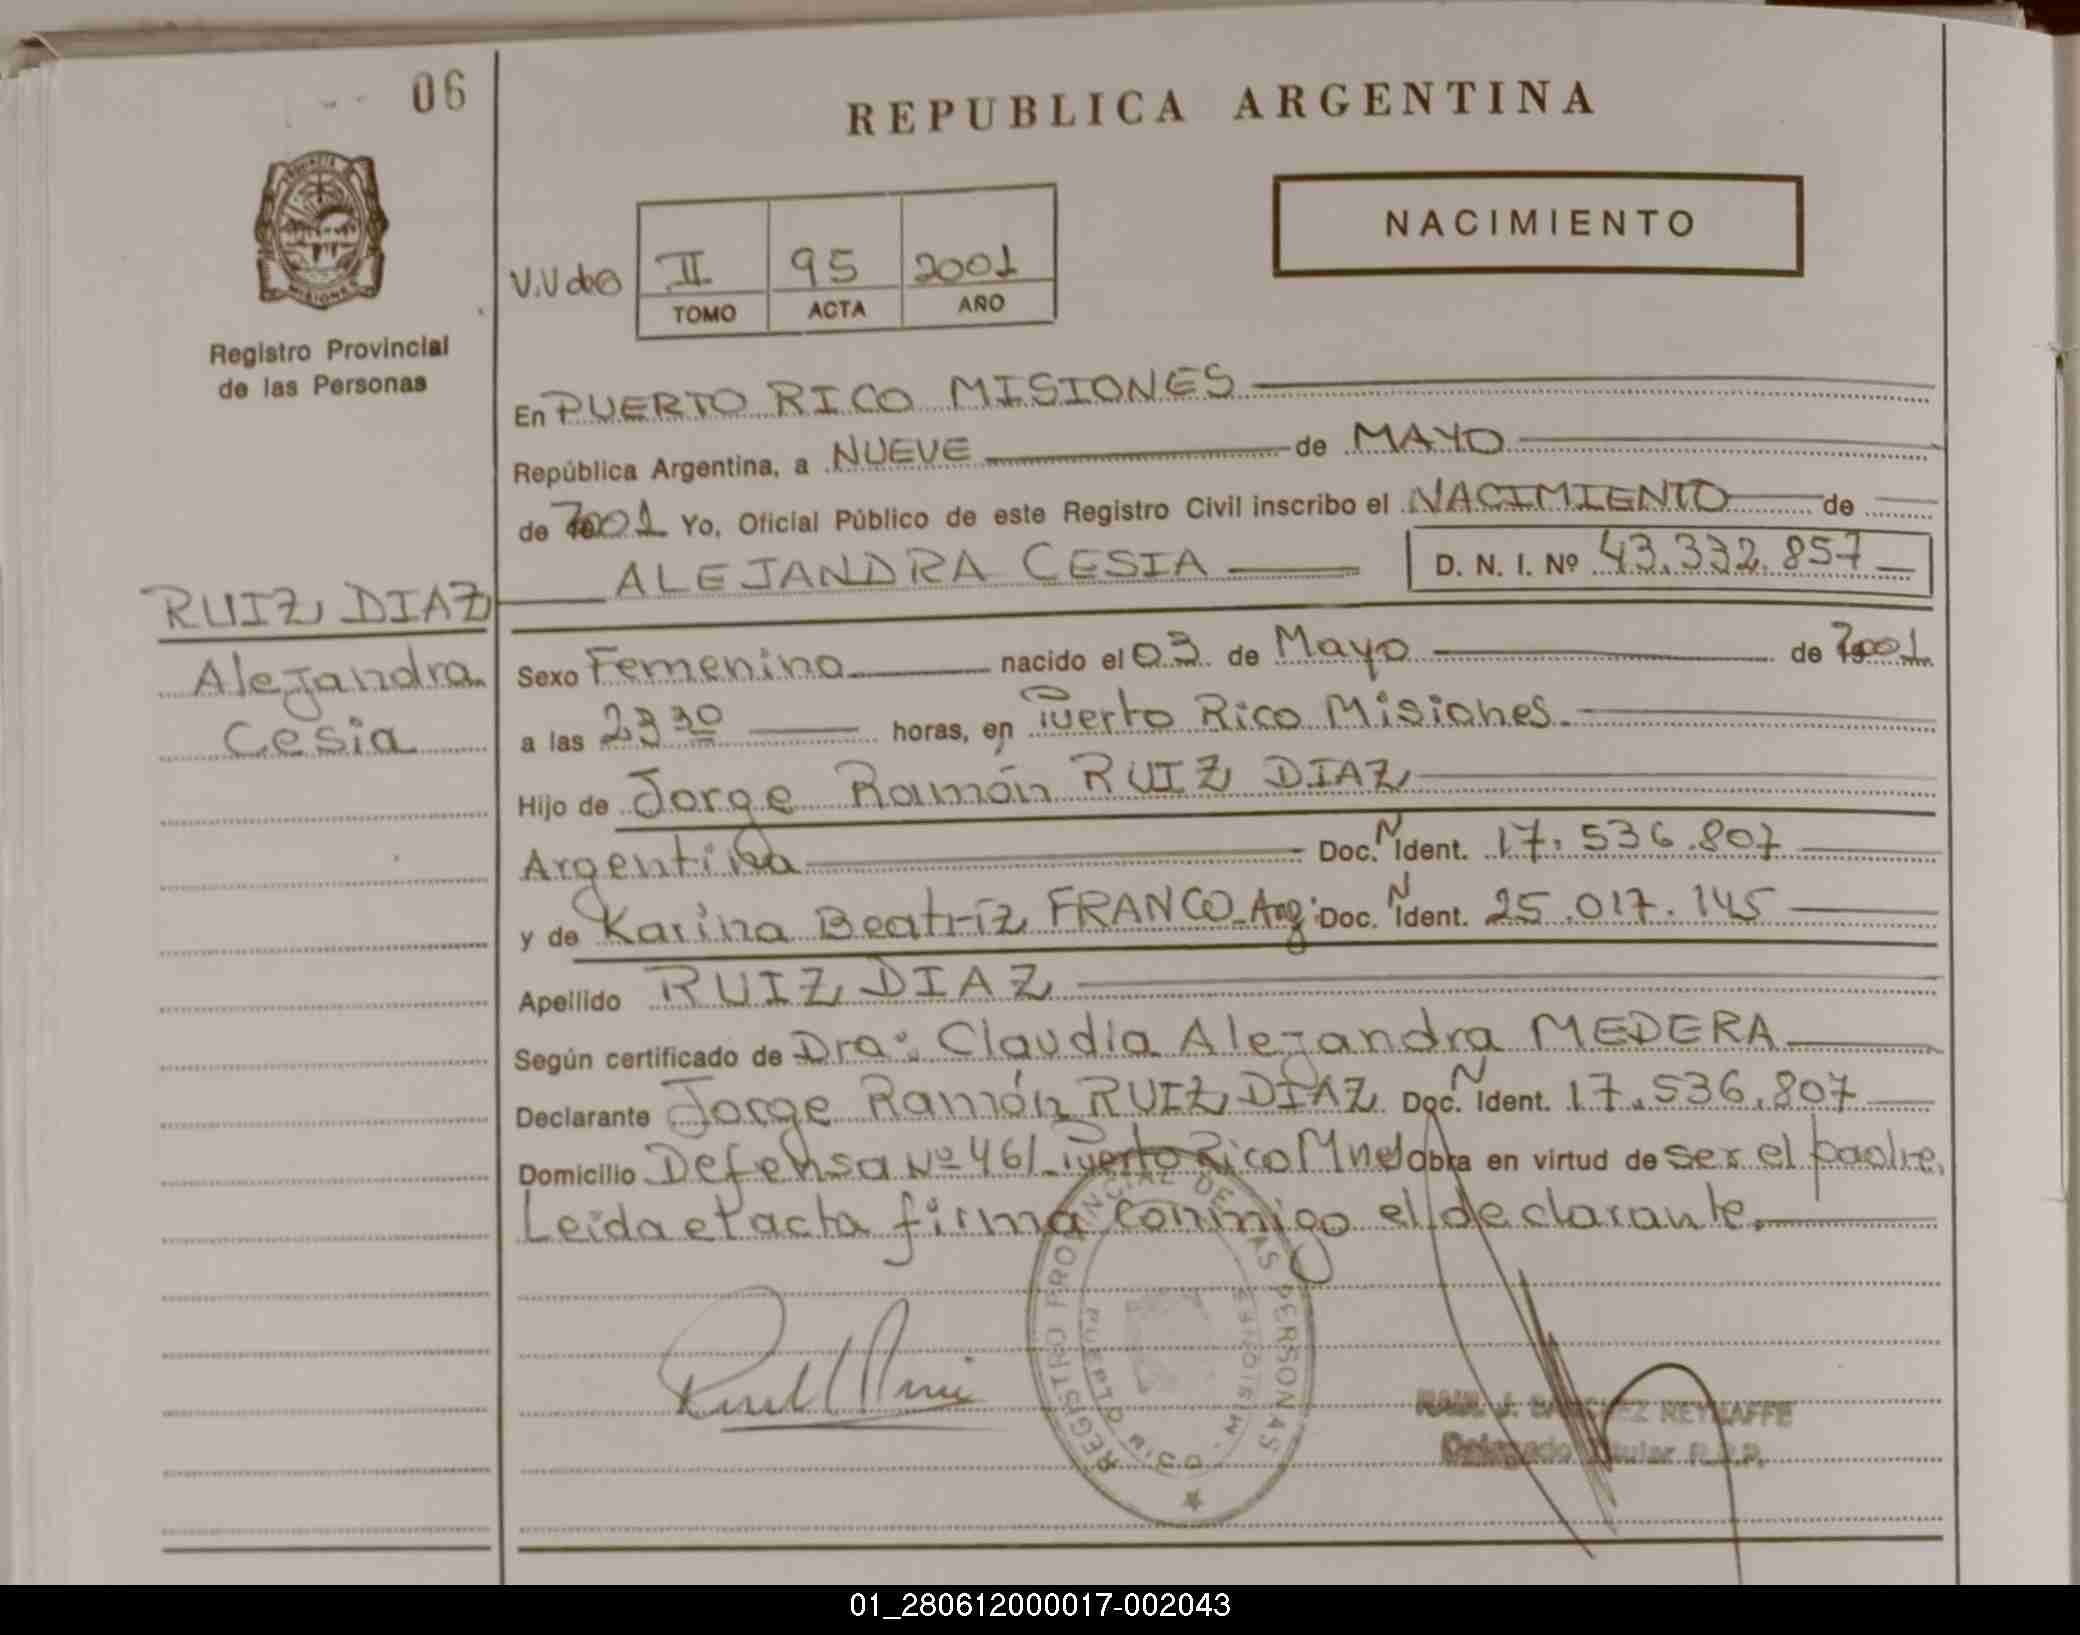 06
REPUBLICA ARGENTINA
NACIMIENTO
MISIONES
Registro Provincial
de las Personas
II 95 2001
TOMO ACTA AÑO
En PUERTO RICO MISIONES
República Argentina, a NUEVE de MAYO
de 2001 Yo, Oficial Público de este Registro Civil inscribo el NACIMIENTO de
ALEJANDRA CESIA D. N. I. Nº 43.332.857
RUIZ DIAZ
Alejandra
Cesia
Sexo Femenino nacido el 03 de Mayo de 2001
a las 23 30 horas, en Puerto Rico Misiones.
Hijo de Jorge Ramón RUIZ DIAZ
Argentina Doc. N Ident. 17.536.807
y de Karina Beatríz FRANCO-Arg. Doc. N Ident. 25.017.145
Apellido RUIZ DIAZ
Según certificado de Dra: Claudia Alejandra MEDERA
Declarante Jorge Ramón RUIZ DIAZ Doc. N Ident. 17.536.807
Domicilio Defensa Nº 461 Puerto Rico Mnes obra en virtud de ser el padre.
Leida el acta firma conmigo el declarante.
REGISTRO PROVINCIAL DE LAS PERSONAS
MISIONES
RAUL J. SANCHEZ REYNAFFE
Delegado Titular R.P.P.
01_280612000017-002043